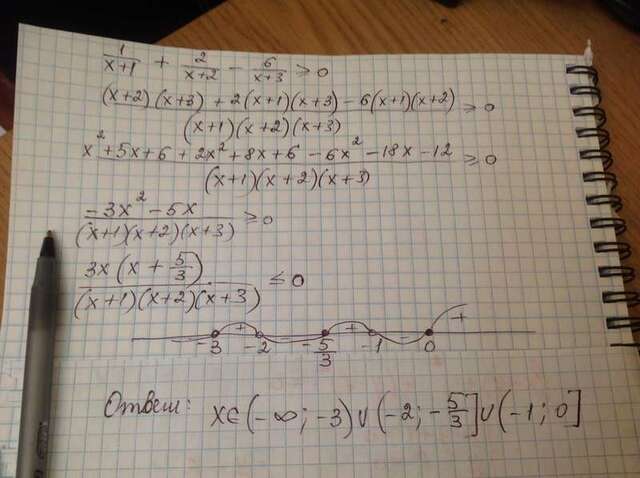 1/(x+1) + 2/(x+2) - 6/(x+3) ≥ 0
((x+2)(x+3) + 2(x+1)(x+3) - 6(x+1)(x+2))/((x+1)(x+2)(x+3)) ≥ 0
(x² + 5x + 6 + 2x² + 8x + 6 - 6x² - 18x - 12)/((x+1)(x+2)(x+3)) ≥ 0
(-3x² - 5x)/((x+1)(x+2)(x+3)) ≥ 0
3x(x + 5/3)/((x+1)(x+2)(x+3)) ≤ 0
- + - + - +
-3 -2 -5/3 -1 0
Ответ: x∈(-∞; -3)∪(-2; -5/3]∪(-1; 0]